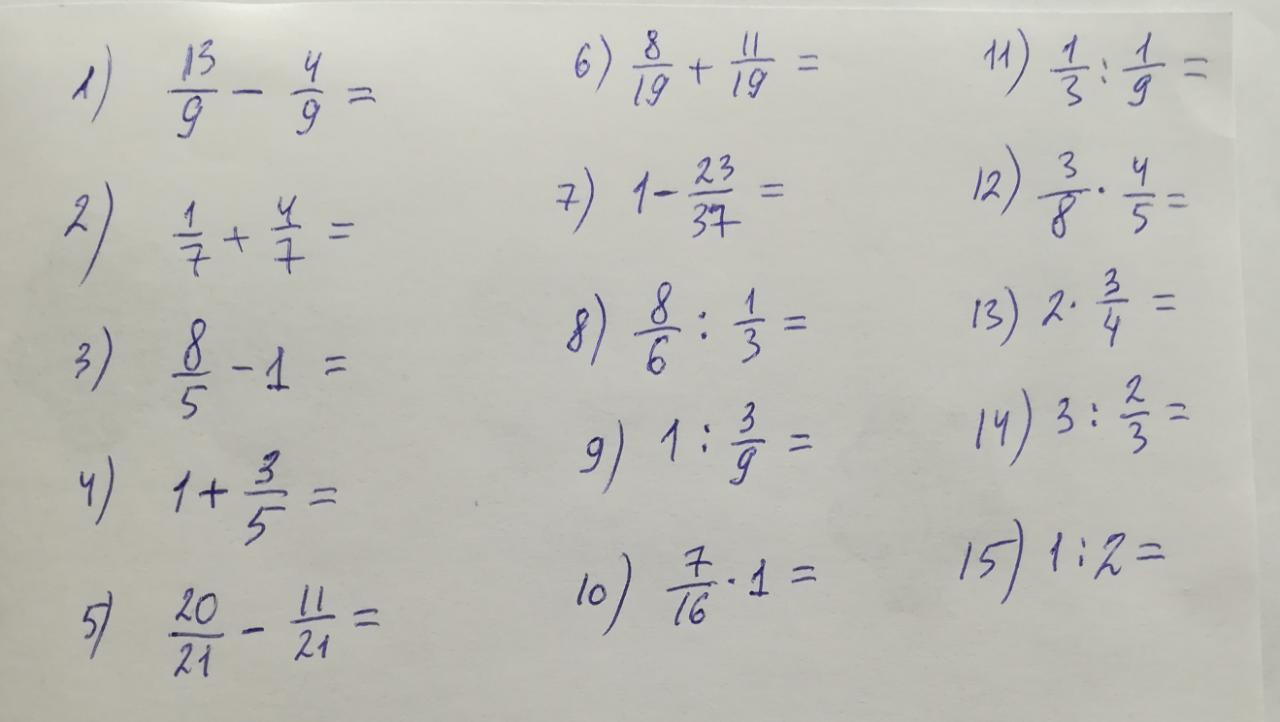 1) 13/9 - 4/9 =
2) 1/7 + 4/7 =
3) 8/5 - 1 =
4) 1 + 3/5 =
5) 20/21 - 11/21 =
6) 8/19 + 11/19 =
7) 1 - 23/37 =
8) 8/6 : 1/3 =
9) 1 : 3/9 =
10) 7/16 · 1 =
11) 1/3 : 1/9 =
12) 3/8 · 4/5 =
13) 2 · 3/4 =
14) 3 : 2/3 =
15) 1 : 2 =